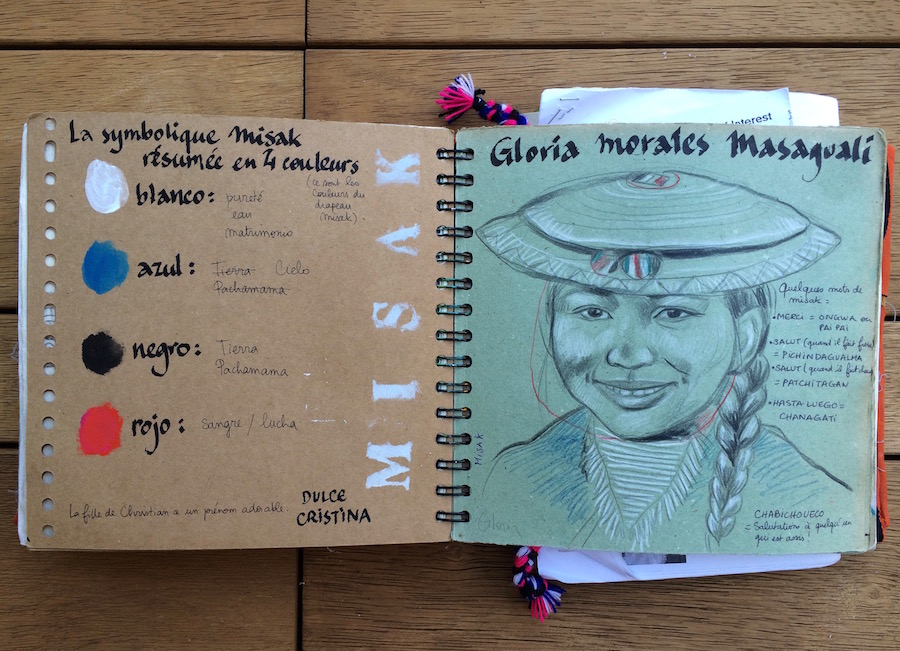 La symbolique Misak
résumée en 4 couleurs
blanco: pureté
eau
matrimonio
(ce sont les
couleurs du
drapeau
misak).
azul: Tierra Cielo
Pachamama
negro: Tierra
Pachamama
rojo: Sangre / lucha
La fille de Christian a un prénom adorable.
DULCE
CRISTINA
MISAK
Interest
Gloria morales Masaguali
Quelques mots de
misak =
• MERCI = ONGWA ou
PAI PAI
• SALUT (quand il fait froid)
= PICHINDAGUALMA
• SALUT (quand il fait chaud
= PATCHITAGAN
• HASTA LUEGO =
CHANAGATI
MISAK
CHABICHOUECO
= Salutation à quelqu'un
qui est assis!